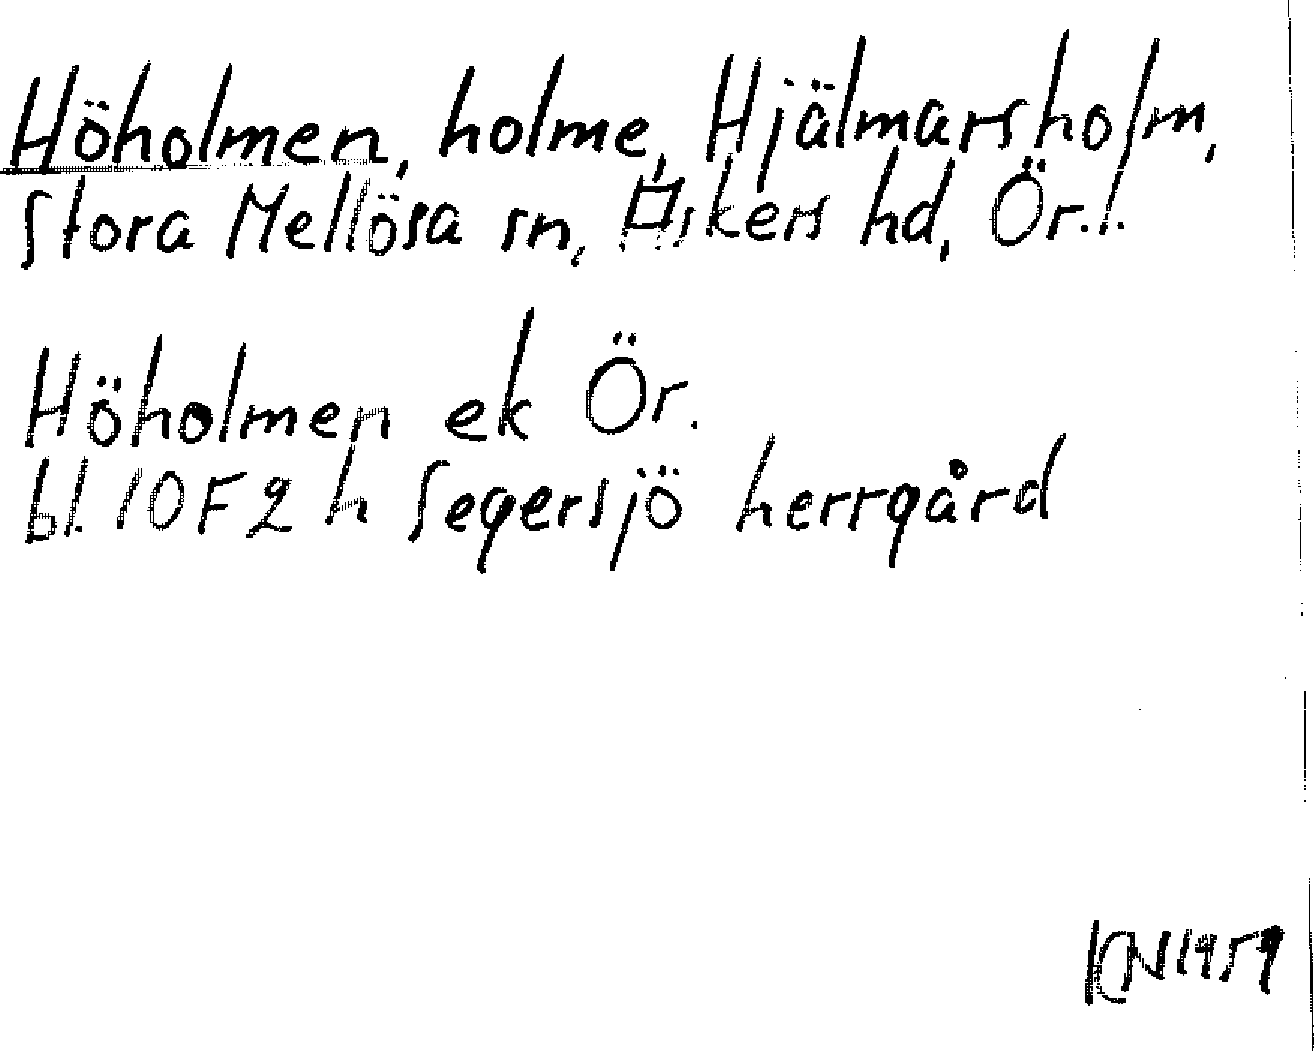 Höholmen, holme, Hjälmarsholm,
Stora Mellösa sn, Askers hd, Ör.l.
Höholmen ek Ör.
bl. 10F2h Segersjö herrgård
KN1959